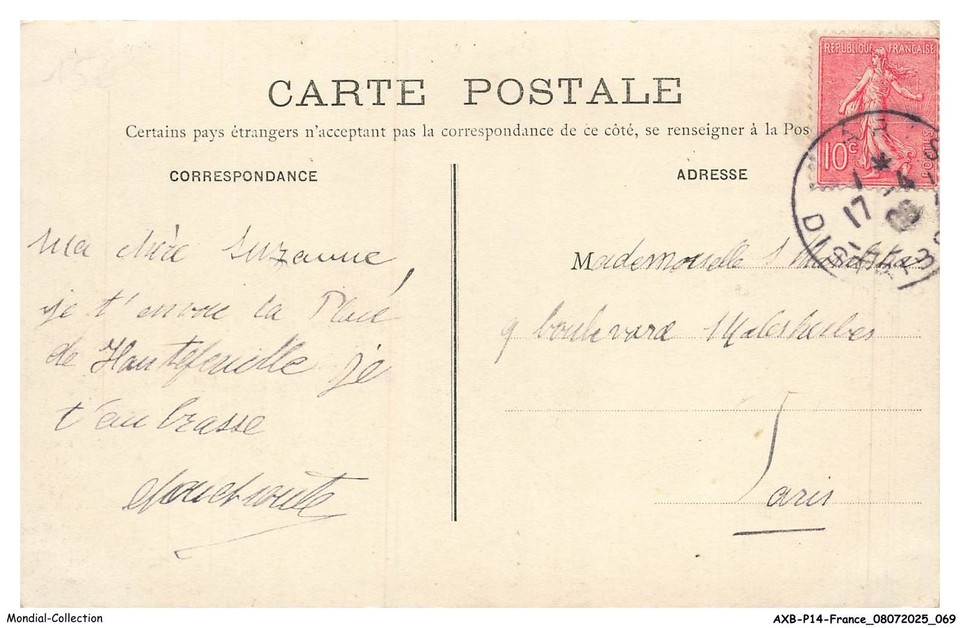 CARTE POSTALE
Certains pays étrangers n'acceptant pas la correspondance de ce côté, se renseigner à la Pos
CORRESPONDANCE
ma chère Suzanne,
je t'envoie la Place
de Hautefeuille je
t'embrasse
ADRESSE
Mademoiselle S
9 boulevard Malesherbes
Paris
RÉPUBLIQUE FRANÇAISE
10c
POSTES
17 -4
DIST
Mondial-Collection
AXB-P14-France_08072025_069